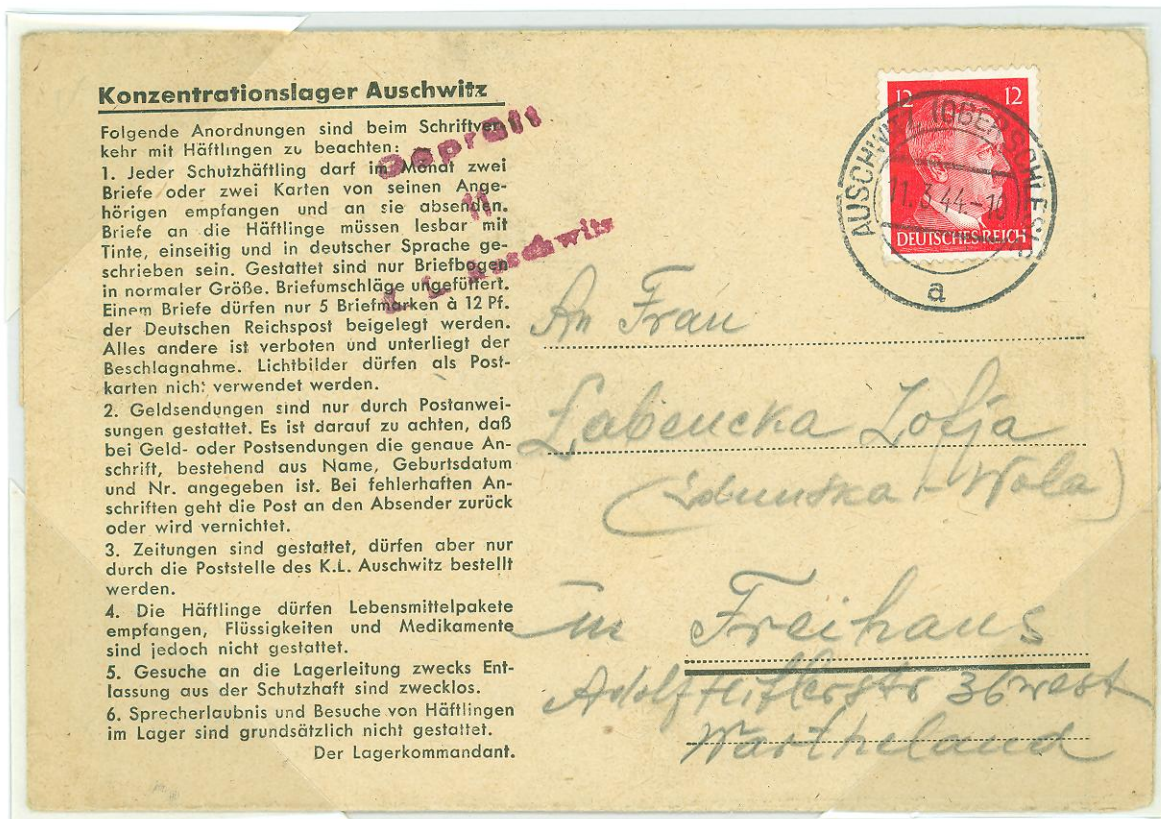 Konzentrationslager Auschwitz
Folgende Anordnungen sind beim Schriftver-
kehr mit Häftlingen zu beachten:
1. Jeder Schutzhäftling darf im Monat zwei
Briefe oder zwei Karten von seinen Ange-
hörigen empfangen und an sie absenden.
Briefe an die Häftlinge müssen lesbar mit
Tinte, einseitig und in deutscher Sprache ge-
schrieben sein. Gestattet sind nur Briefbogen
in normaler Größe. Briefumschläge ungefüttert.
Einem Briefe dürfen nur 5 Briefmarken à 12 Pf.
der Deutschen Reichspost beigelegt werden.
Alles andere ist verboten und unterliegt der
Beschlagnahme. Lichtbilder dürfen als Post-
karten nicht verwendet werden.
2. Geldsendungen sind nur durch Postanwei-
sungen gestattet. Es ist darauf zu achten, daß
bei Geld- oder Postsendungen die genaue An-
schrift, bestehend aus Name, Geburtsdatum
und Nr. angegeben ist. Bei fehlerhaften An-
schriften geht die Post an den Absender zurück
oder wird vernichtet.
3. Zeitungen sind gestattet, dürfen aber nur
durch die Poststelle des K.L. Auschwitz bestellt
werden.
4. Die Häftlinge dürfen Lebensmittelpakete
empfangen, Flüssigkeiten und Medikamente
sind jedoch nicht gestattet.
5. Gesuche an die Lagerleitung zwecks Ent-
lassung aus der Schutzhaft sind zwecklos.
6. Sprecherlaubnis und Besuche von Häftlingen
im Lager sind grundsätzlich nicht gestattet.
Der Lagerkommandant.
Geprüft
11
K. L. Auschwitz
12 12
DEUTSCHES REICH
AUSCHWITZ (OBERSCHLES)
11.3.44-10
a
An Frau
Łabencka Zofja
(Zdunska-Wola)
in Freihaus
Adolf Hitlerstr 36 west
Wartheland